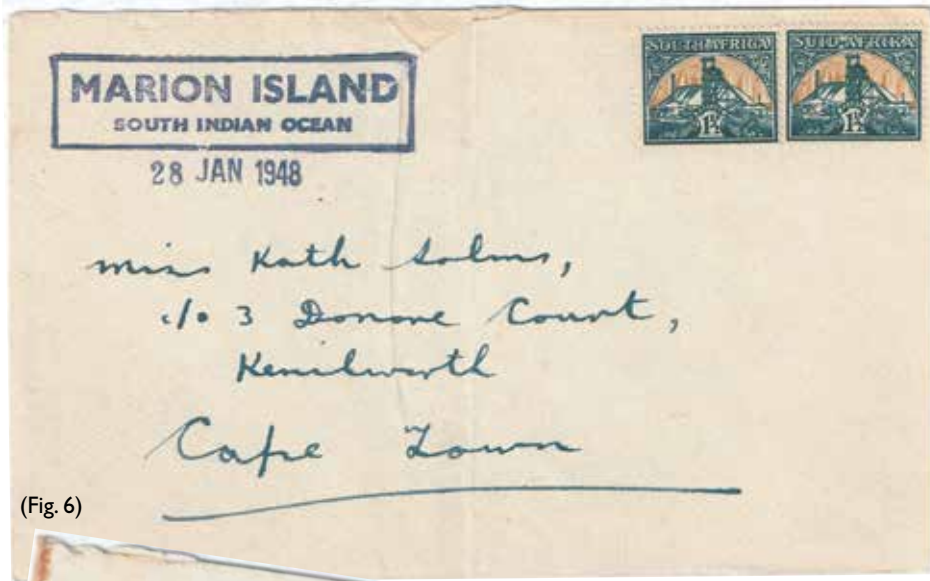 MARION ISLAND
SOUTH INDIAN OCEAN
28 JAN 1948
SOUTH AFRICA SUID-AFRIKA
1½ 1½
Miss Kath Solms,
c/o 3 Donore Court,
Kenilworth
Cape Town
(Fig. 6)